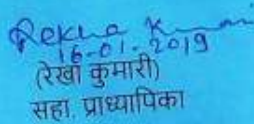 Rekha Kumari
16-01-2019
(रेखा कुमारी)
सहा. प्राध्यापिका